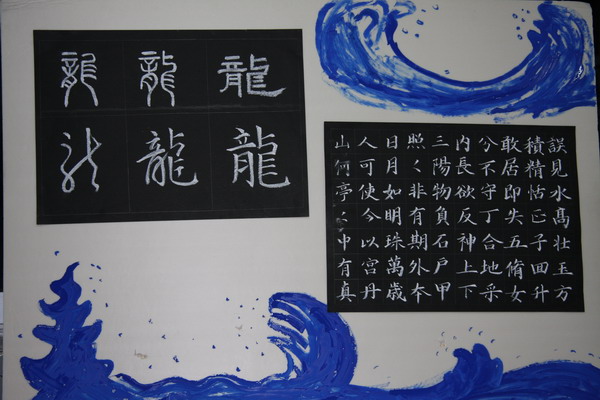 龍龍龍
龍龍龍
誤見水髙壮玉方
積精怙正子回升
敢居即失五脩女
兮不守丁合地采
内長欲反神上下
三陽物負石戸甲
照々非有期外本
日月如明珠萬歳
人可使令以宮丹
山何亭々中有真